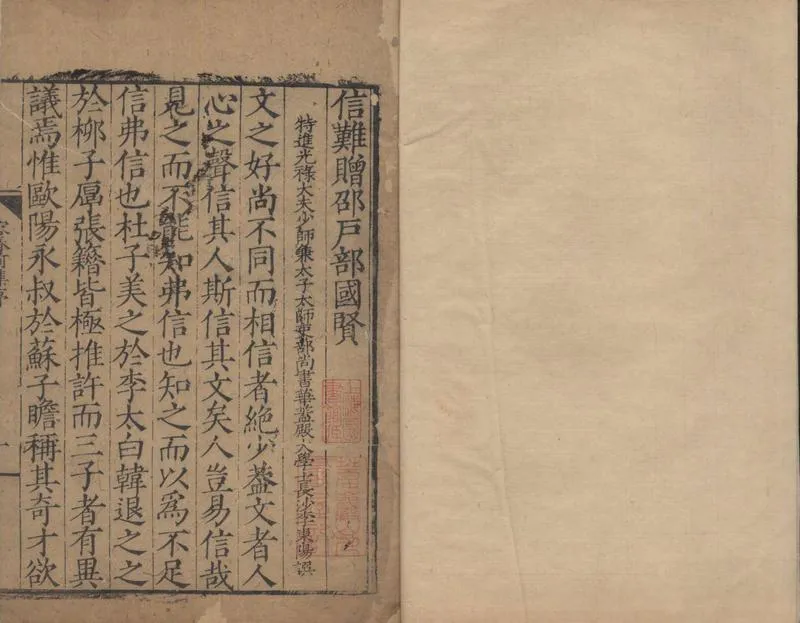 信難贈邵戶部國賢
特進光祿大夫少師兼太子太師吏部尚書華蓋殿大學士長沙李東陽譔
文之好尚不同而相信者絶少葢文者人
心之聲信其人斯信其文矣人豈易信哉
見之而不能知弗信也知之而以爲不足
信弗信也杜子美之於李太白韓退之之
於柳子厚張籍皆極推許而三子者有異
議焉惟歐陽永叔於蘇子瞻稱其奇才欲